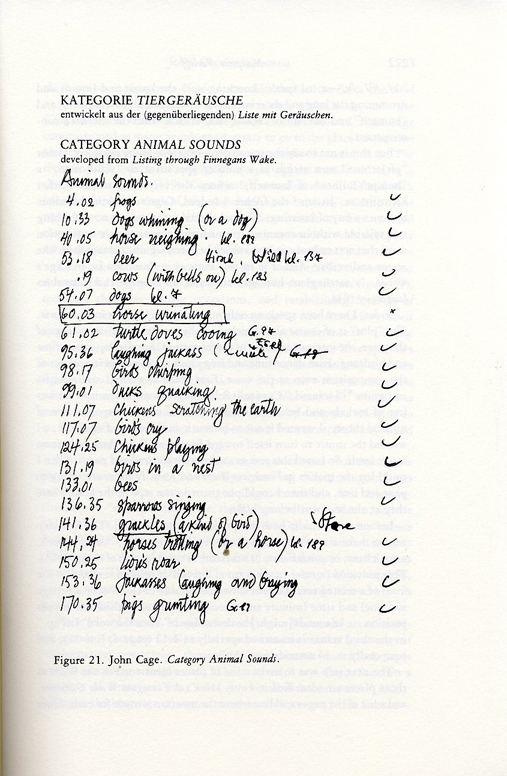 KATEGORIE TIERGERÄUSCHE
entwickelt aus der (gegenüberliegenden) Liste mit Geräuschen.
CATEGORY ANIMAL SOUNDS
developed from Listing through Finnegans Wake.
Animal sounds.
4.02 frogs ✓
10.33 dogs whining (or a dog) ✓
40.05 horse neighing. bl. 189 ✓
53.18 deer bl. 137 ✓
.19 cows (with bells on) bl. 183 ✓
54.07 dogs bl. 7 ✓
60.03 horse urinating x
61.02 turtle doves cooing G.97 ✓
95.36 laughing jackass ✓
98.17 birds chirping ✓
99.01 ducks quacking ✓
111.07 chickens scratching the earth ✓
117.07 birds cry ✓
124.25 chickens playing ✓
131.19 birds in a nest ✓
133.01 bees ✓
136.35 sparrows singing ✓
141.36 grackles (a kind of bird)
144.24 horses trotting (or a horse) bl. 189 ✓
150.25 lion's roar ✓
153.36 jackasses laughing and braying ✓
170.35 pigs grunting ✓
Figure 21. John Cage. Category Animal Sounds.